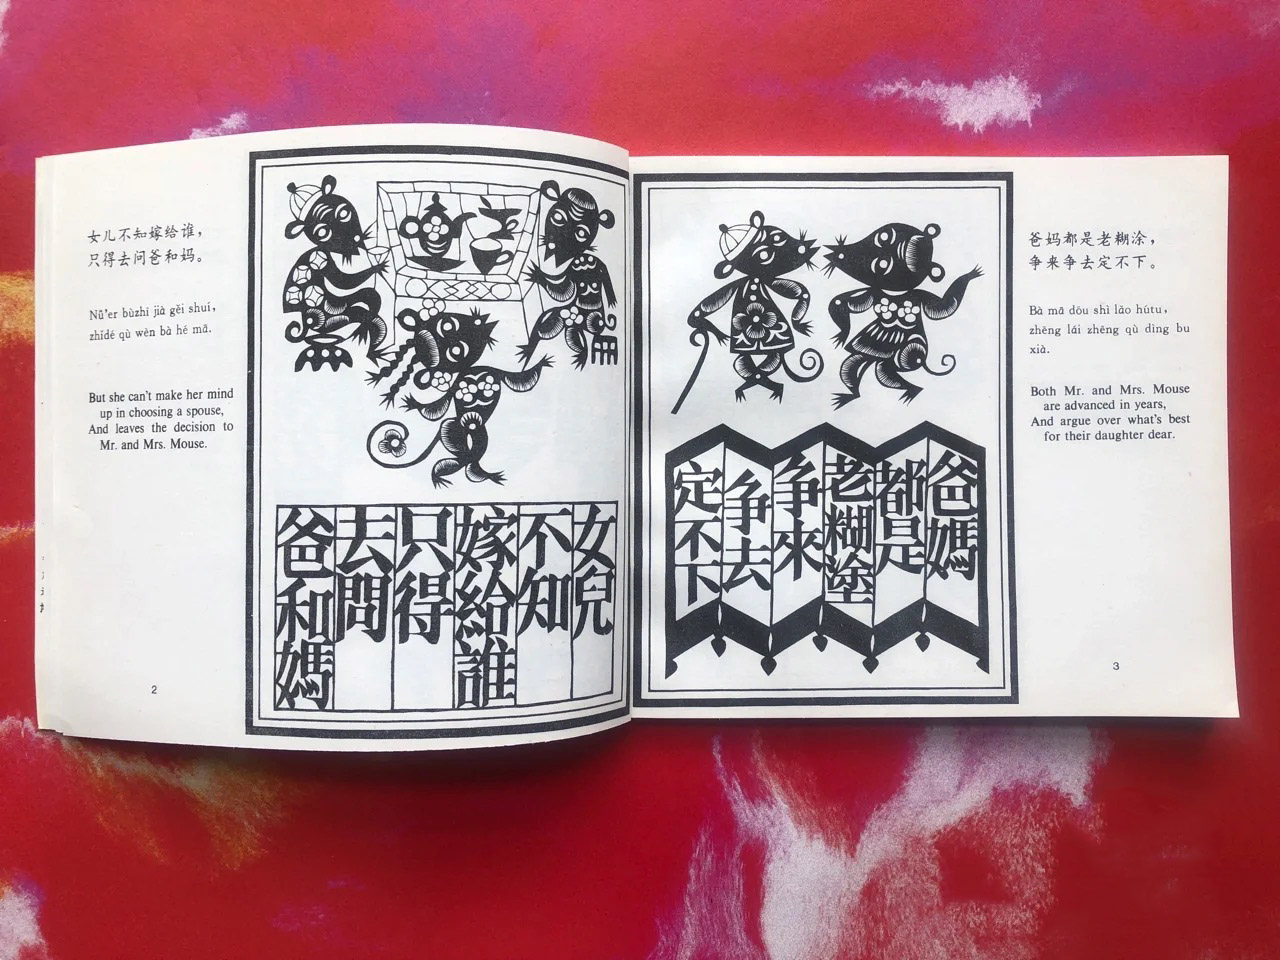 女儿不知嫁给谁，
只得去问爸和妈。
Nǚ'er bùzhi jià gěi shuí,
zhǐdé qù wèn bà hé mā.
But she can't make her mind
up in choosing a spouse,
And leaves the decision to
Mr. and Mrs. Mouse.
2
女兒
不知
嫁給誰
只得
去問
爸和媽
爸媽
都是
老糊塗
爭來
爭去
定不下
爸妈都是老糊涂，
争来争去定不下。
Bà mā dōu shì lǎo hútu,
zhēng lái zhēng qù dìng bu
xià.
Both Mr. and Mrs. Mouse
are advanced in years,
And argue over what's best
for their daughter dear.
3